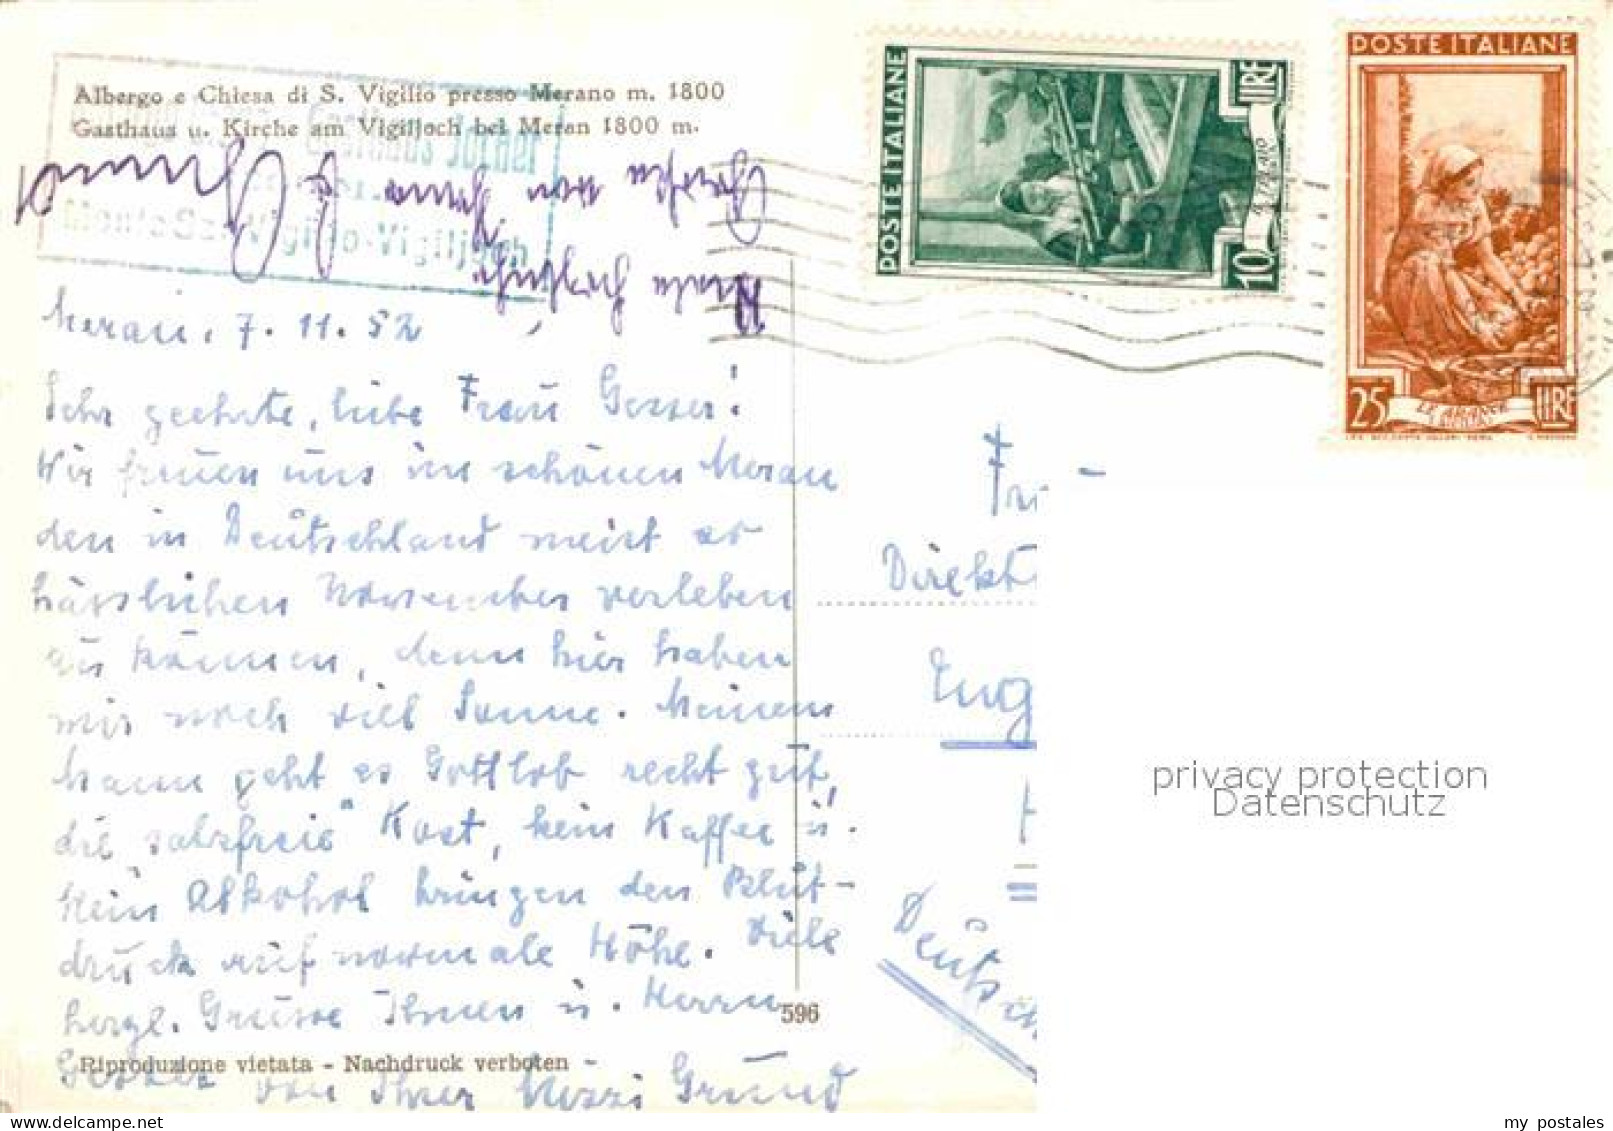 Albergo e Chiesa di S. Vigilio presso Merano m. 1800
Gasthaus u. Kirche am Vigiljoch bei Meran 1800 m.
Gasthaus Jocher
Monte San Vigilio-Vigiljoch
Meran, 7.11.52
Sehr geehrte, liebe Frau Gesser!
Wir freuen uns im schönen Meran
den in Deutschland meist so
hässlichen November verleben
zu können, denn hier haben
wir noch viel Sonne. Meinem
Mann geht es Gottlob recht gut,
die "salzfreie" Kost, kein Kaffee u.
kein Alkohol bringen den Blut-
druck auf normale Höhe. Viele
herzl. Grüsse Ihnen u. Herrn
von Ihrer Mizzi Grund
Riproduzione vietata - Nachdruck verboten
596
POSTE ITALIANE
10 LIRE
POSTE ITALIANE
25 LIRE
LE ARANCE
Direkt
Eug
Deutsch
privacy protection
Datenschutz
my_postales